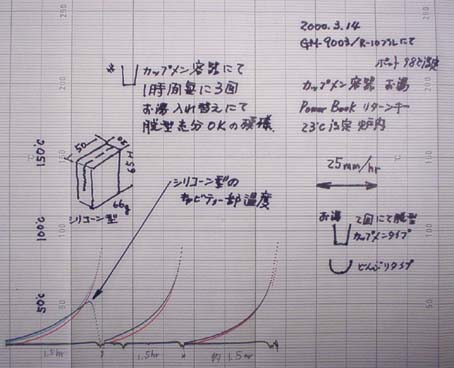 2000.3.14
GM-9003/R-10プラレにて
ポット98℃設定
カップメン容器 お湯
Power Book リターンキー
23℃設定 炉内
カップメン容器にて
1時間毎に3回
お湯入れ替えにて
脱型充分OKの模様
50
50
H59
66g
シリコーン型
シリコーン型の
キャビティー部温度
25mm/hr
お湯 2回にて脱型
カップメンタイプ
どんぶりタイプ
150℃
100℃
50℃
290
250
210
290
250
210
150
100
50
1.5hr
1.5hr
約1.5hr